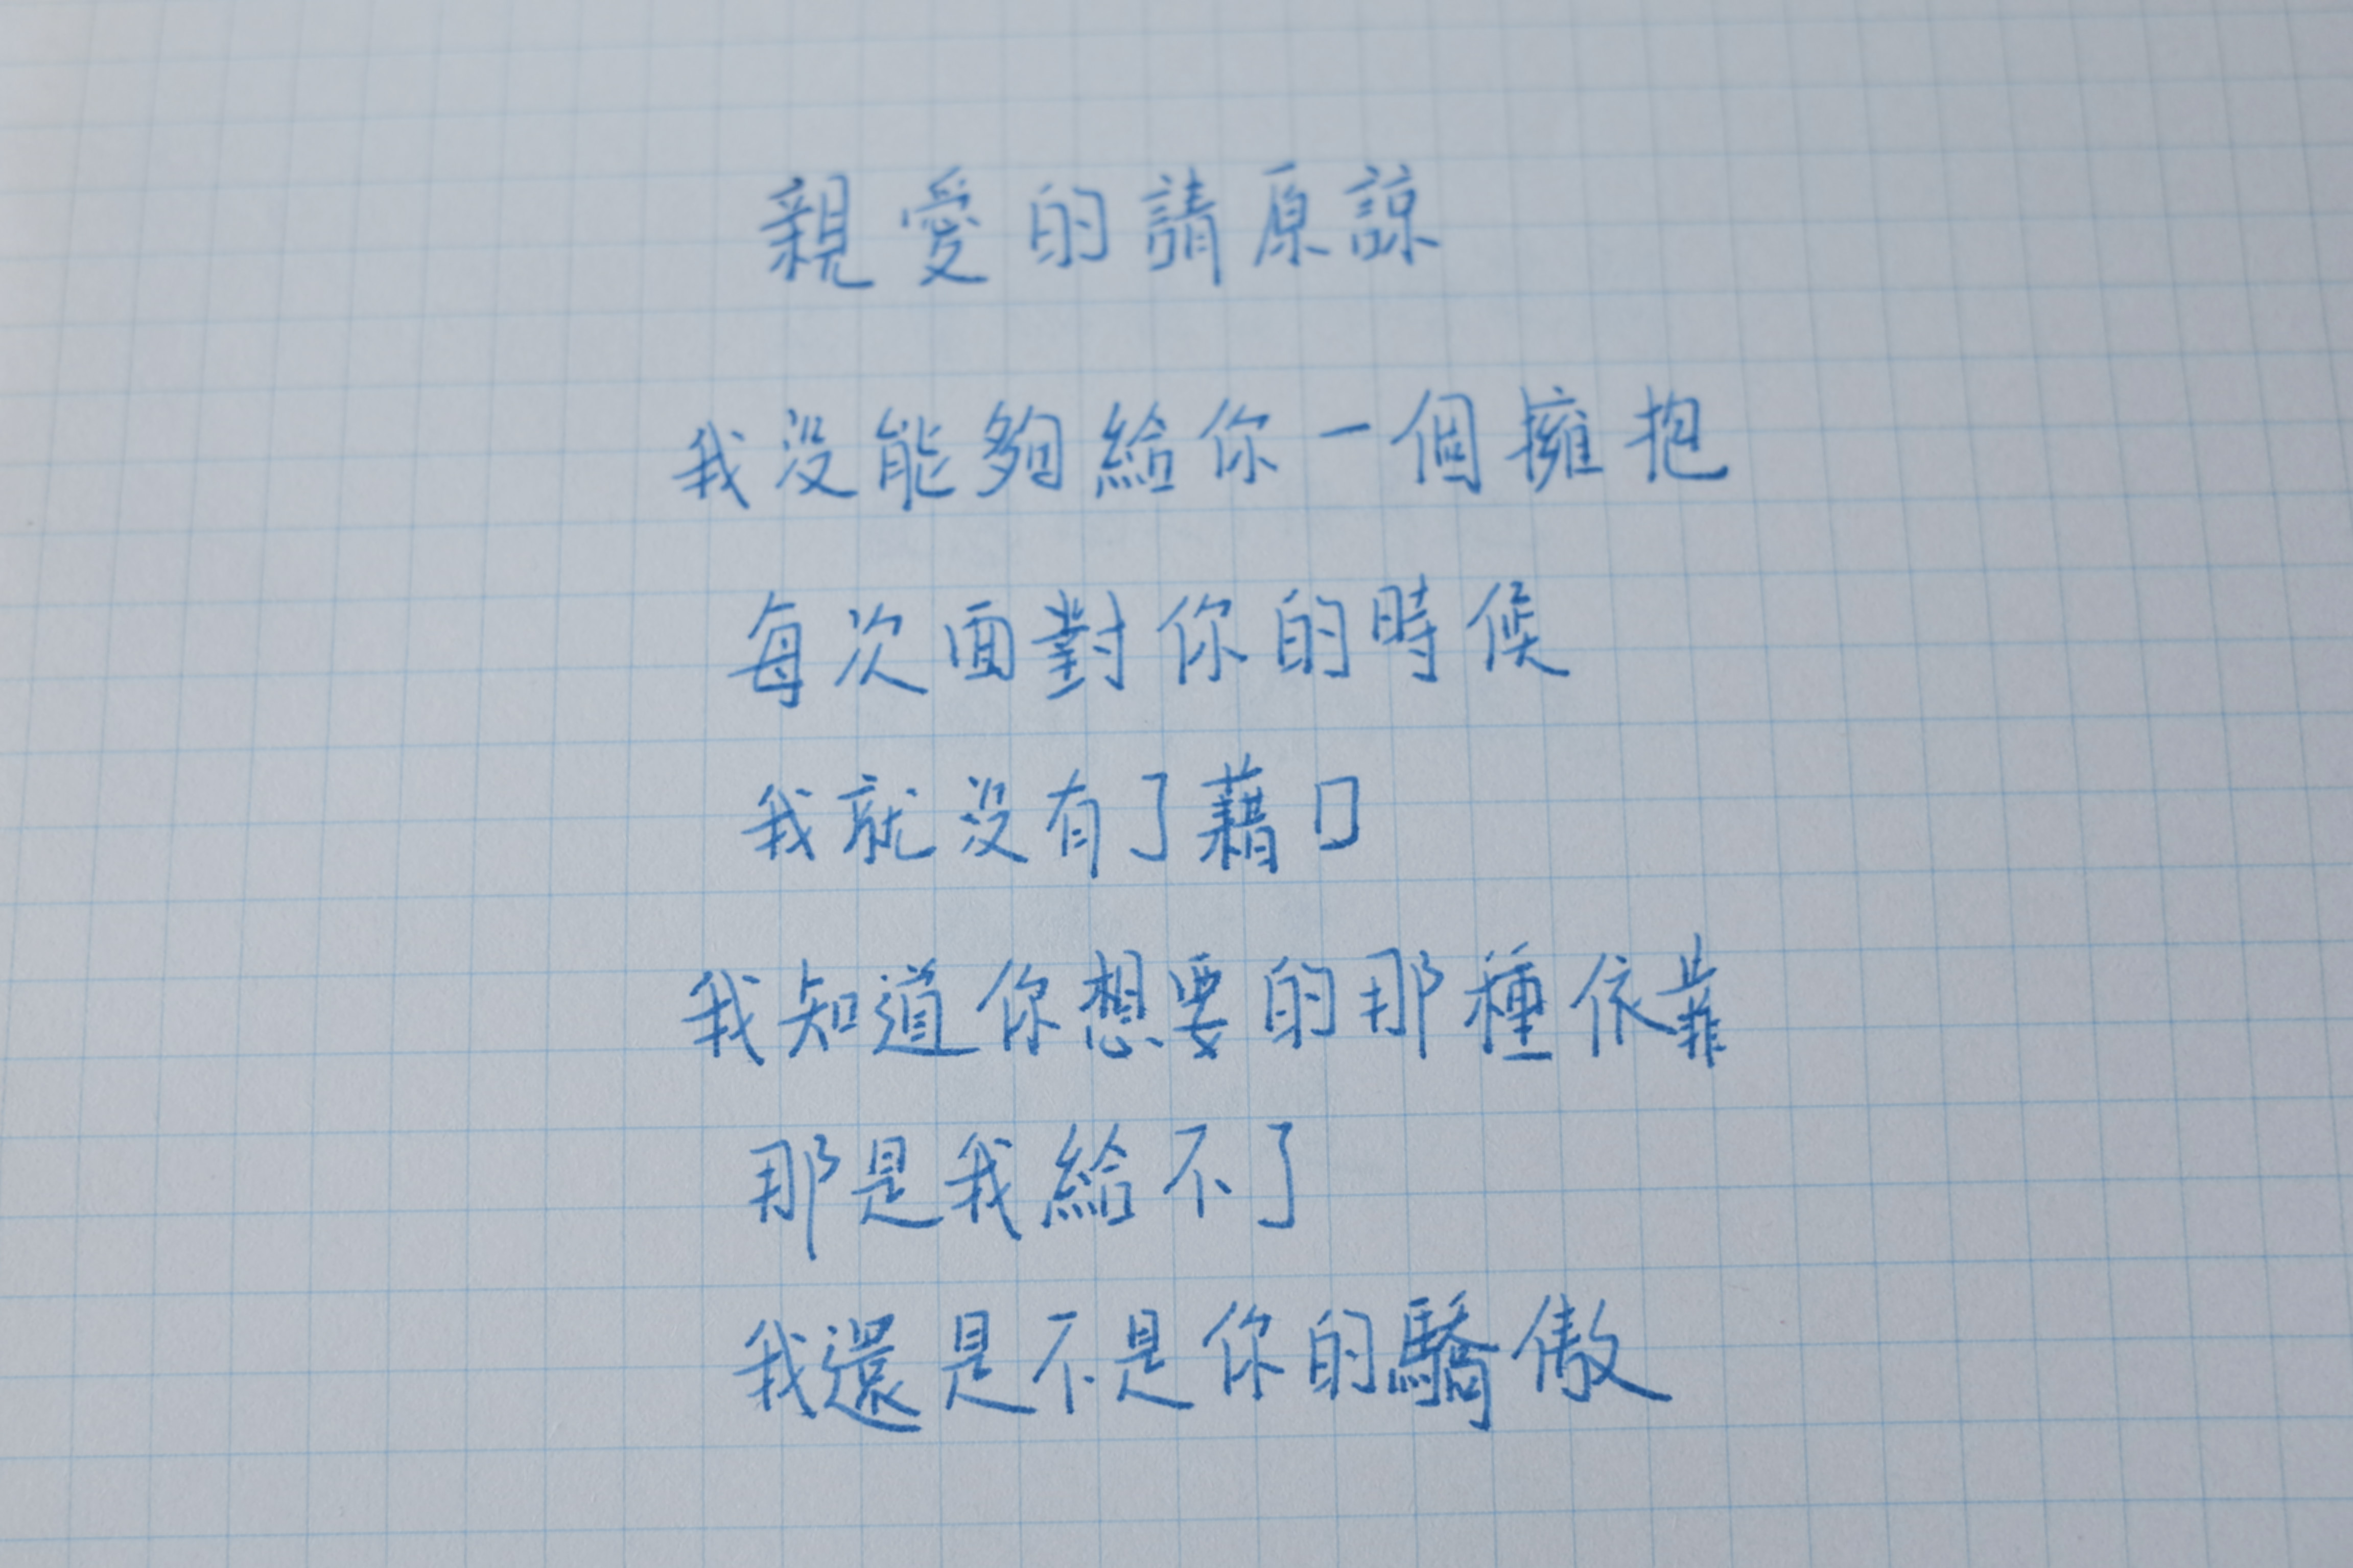 親愛的請原諒
我沒能夠給你一個擁抱
每次面對你的時候
我就沒有了藉口
我知道你想要的那種依靠
那是我給不了
我還是不是你的驕傲